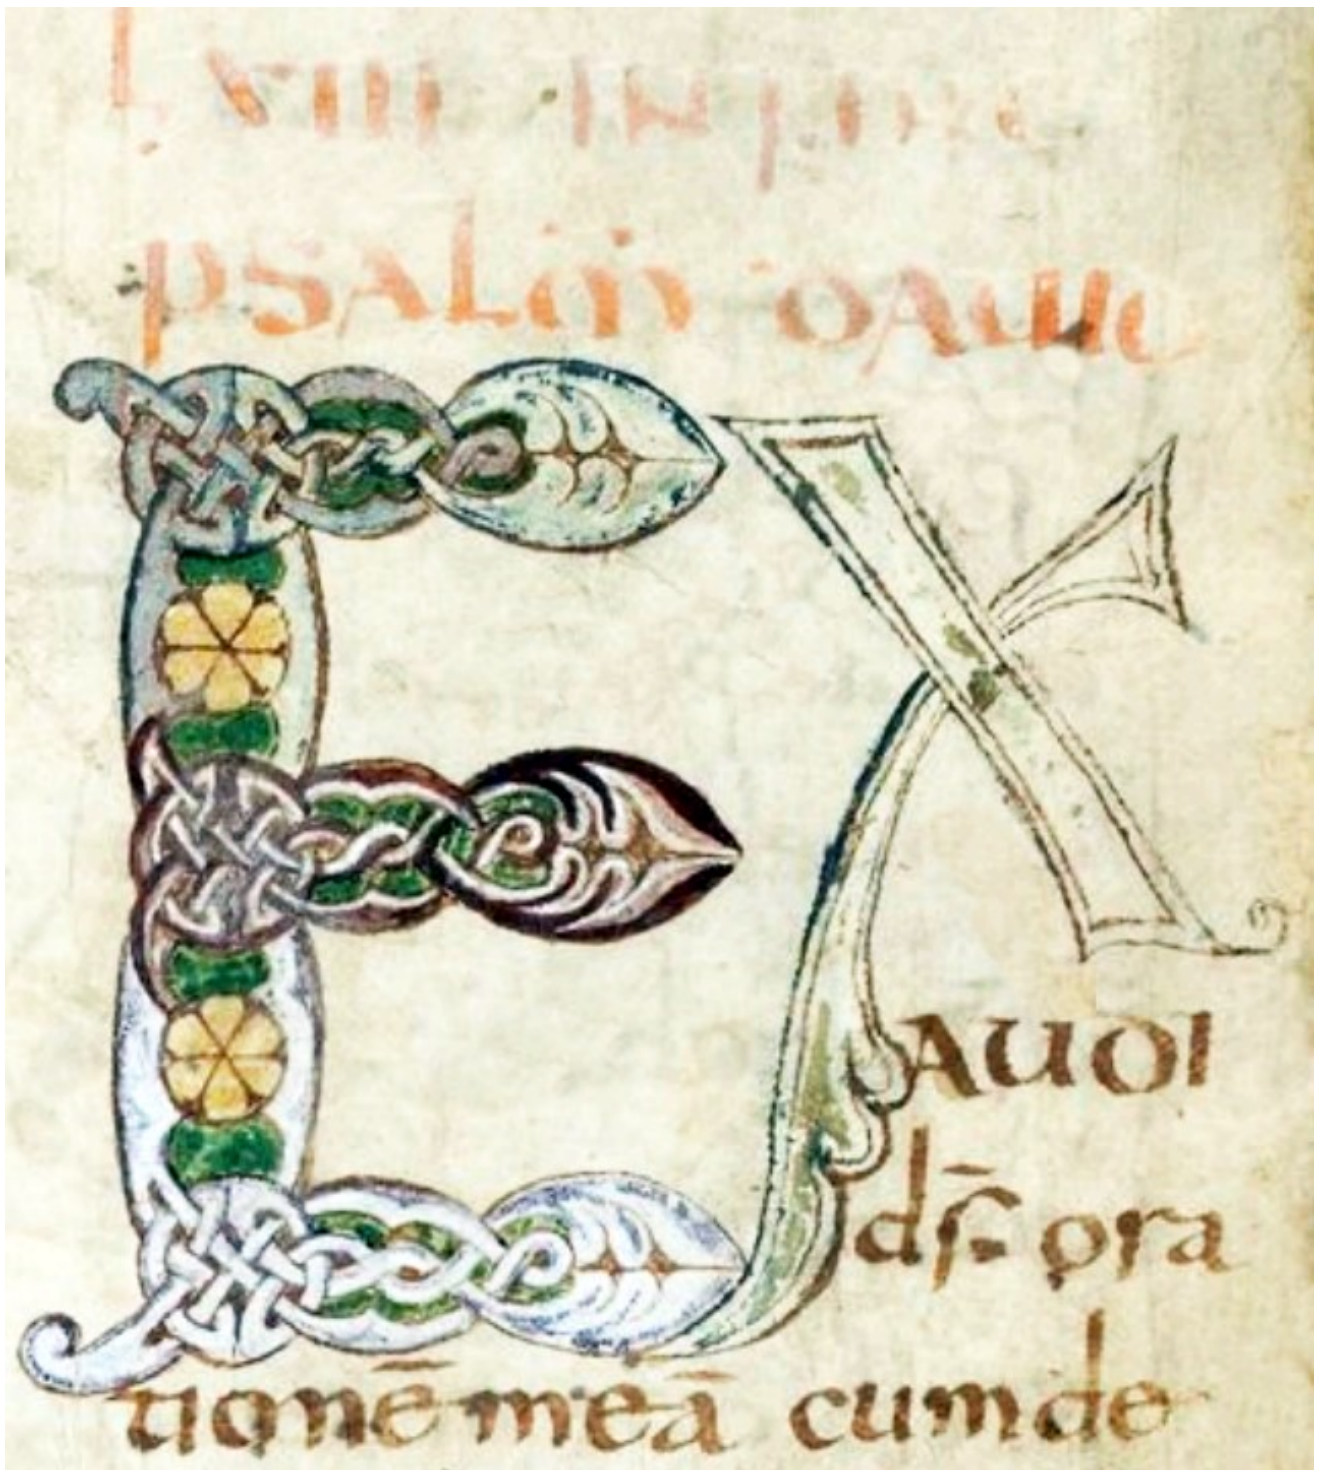 LXIII IN FINE
psalm̄ david
EX
AUDI
ds̄ ora
tionē meā cum de